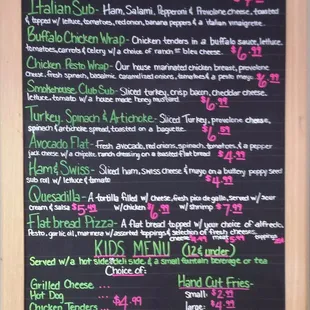 Italian Sub- Ham, Salami, Pepperoni & Provolone cheese, toasted
& topped w/ lettuce, tomatoes, red onion, banana peppers & a italian vinaigrette.
Buffalo Chicken Wrap- Chicken tenders in a buffalo sauce, lettuce,
tomatoes, carrots & celery w/ a choice of ranch or bleu cheese. $6.99
Chicken Pesto Wrap- Our house marinated chicken breast, provolone
cheese, fresh spinach, balsamic caramelized onions, tomatoes & a pesto mayo. $6.99
Smokehouse Club Sub- Sliced turkey, crisp bacon, cheddar cheese,
lettuce, tomato w/ a house made honey mustard. $6.99
Turkey, Spinach & Artichoke- Sliced Turkey, provolone cheese,
spinach & artichoke spread, toasted on a baguette. $6.99
Avocado Flat- Fresh avocado, red onions, spinach, tomatoes, & a pepper
jack cheese w/ a chipotle ranch dressing on a toasted flat bread $4.99
Ham & Swiss- Sliced ham, swiss cheese & mayo on a buttery poppy seed
sub roll w/ lettuce & tomato $4.99
Quesadilla- A tortilla filled w/ cheese, fresh pico de gallo, served w/ sour
cream & salsa $5.99 w/chicken $6.99 w/shrimp $7.99
Flat bread Pizza- A flat bread topped w/ your choice of alfredo,
Pesto, garlic oil, marinara w/ assorted toppings & selection of fresh cheeses.
cheese $4.99 meat $5.99 toppings
KIDS MENU (12 & under)
Served w/ a hot side, deli side & a small fountain beverage or tea
Choice of:
Grilled Cheese ...
Hot Dog ...
Chicken Tenders ... $4.99
Hand Cut Fries-
Small- $2.99
large- $4.99